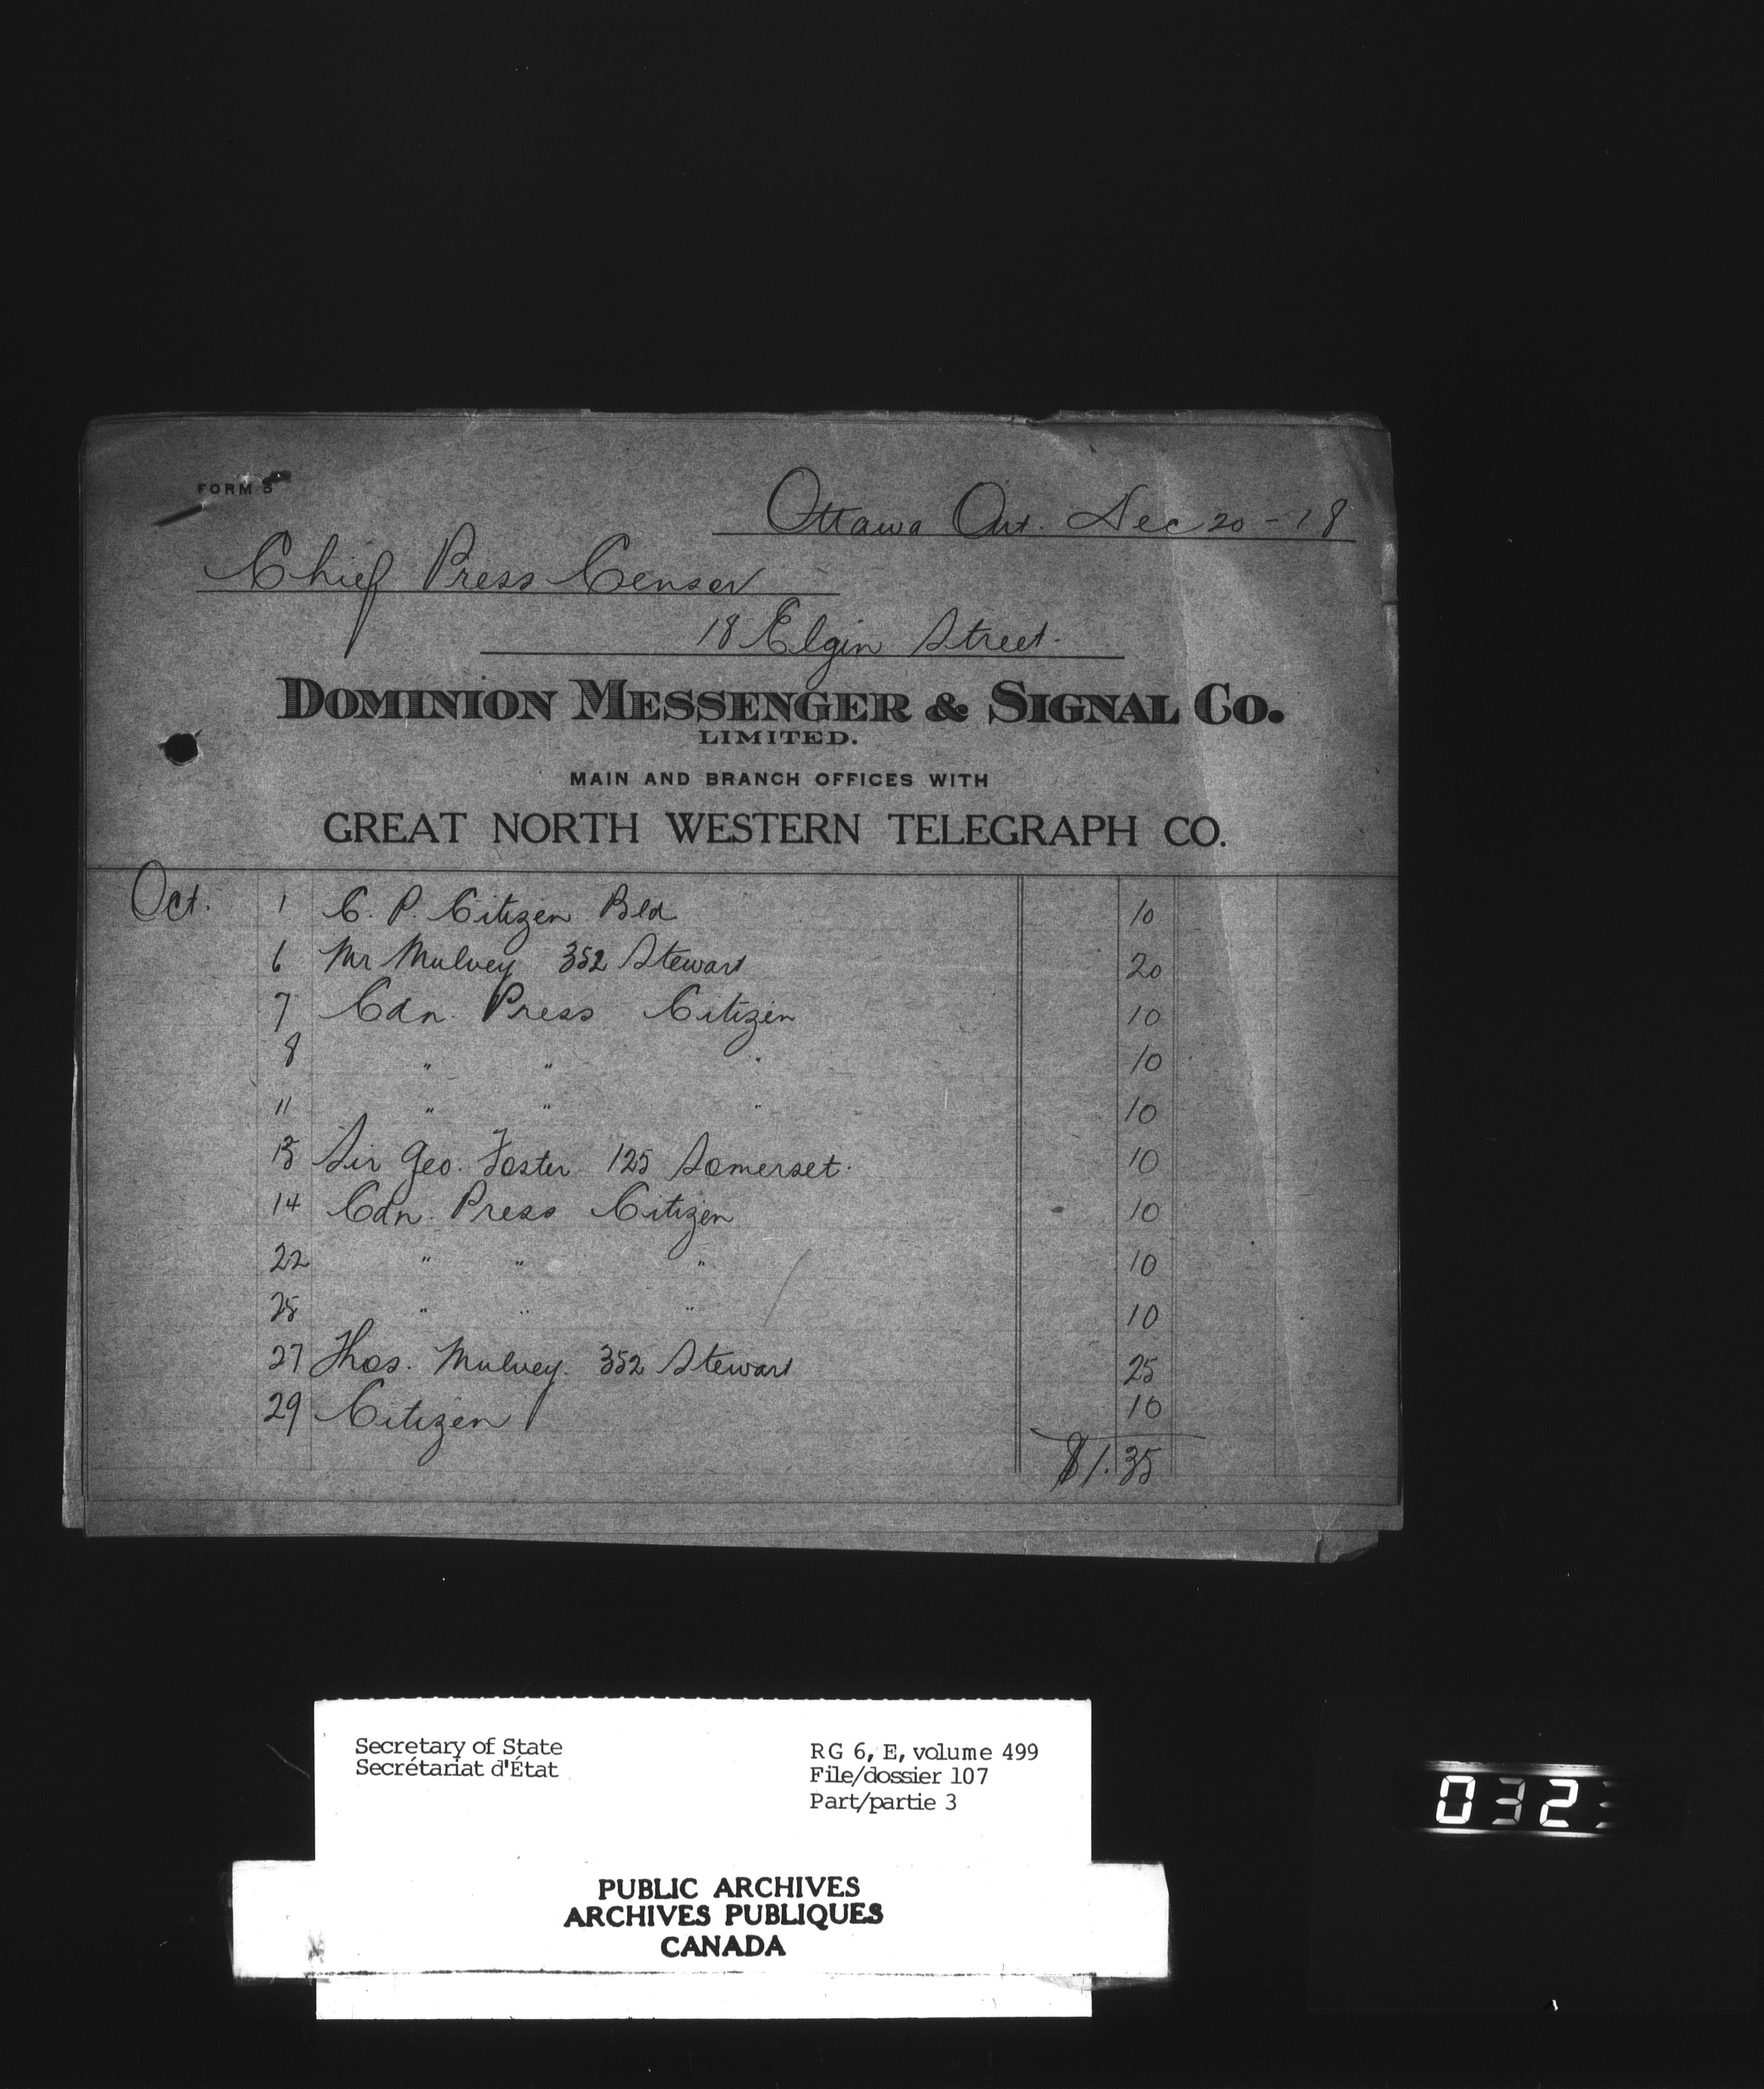 FORM 5
Ottawa Ont. Dec 20 - 18
Chief Press Censor
18 Elgin Street.
DOMINION MESSENGER & SIGNAL CO.
LIMITED.
MAIN AND BRANCH OFFICES WITH
GREAT NORTH WESTERN TELEGRAPH CO.
Oct. 1 C. P. Citizen Bld 10
6 Mr Mulvey 352 Stewart 20
7 Cdn. Press Citizen 10
8 " " " 10
11 " " " 10
13 Sir Geo. Foster 125 Somerset. 10
14 Cdn. Press Citizen 10
22 " " " 10
25 " " " 10
27 Thos. Mulvey. 352 Stewart 25
29 Citizen 10
$1.35
Secretary of State
Secrétariat d'État
RG 6, E, volume 499
File/dossier 107
Part/partie 3
PUBLIC ARCHIVES
ARCHIVES PUBLIQUES
CANADA
032